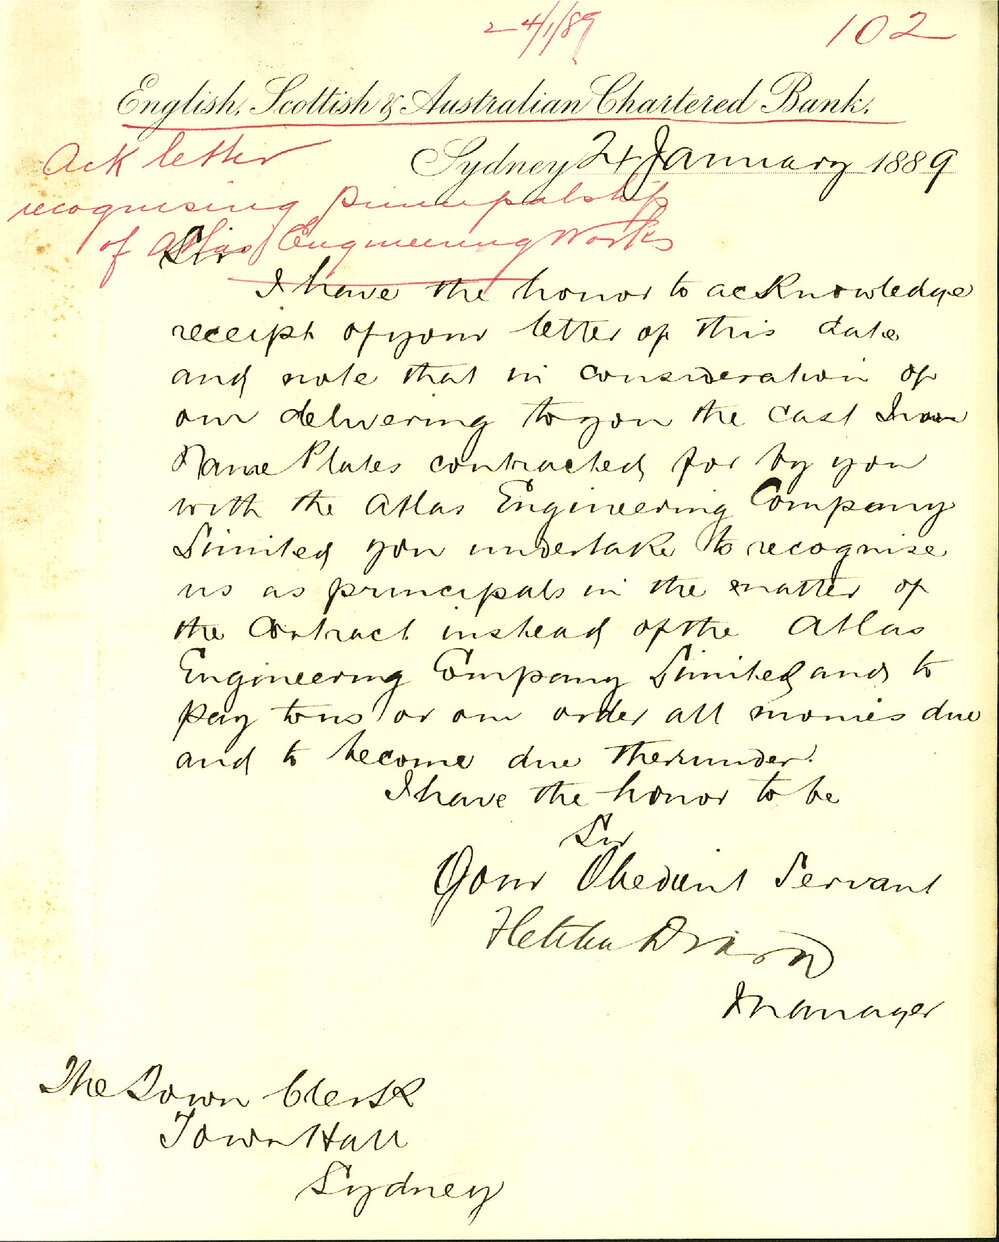 24/1/89
102
English, Scottish & Australian Chartered Bank.
Ack letter
Sydney 24 January 1889
recognising principalship
of Atlas Engineering Works
Sir
I have the honor to acknowledge
receipt of your letter of this date
and note that in consideration of
our delivering to you the cast Iron
Name Plates contracted for by you
with the Atlas Engineering Company
Limited you undertake to recognise
us as principals in the matter of
the Contract instead of the Atlas
Engineering Company Limited and to
pay to us or our order all monies due
and to become due thereunder.
I have the honor to be
Sir
Your Obedient Servant
Dixon
Manager
The Town Clerk
Town Hall
Sydney